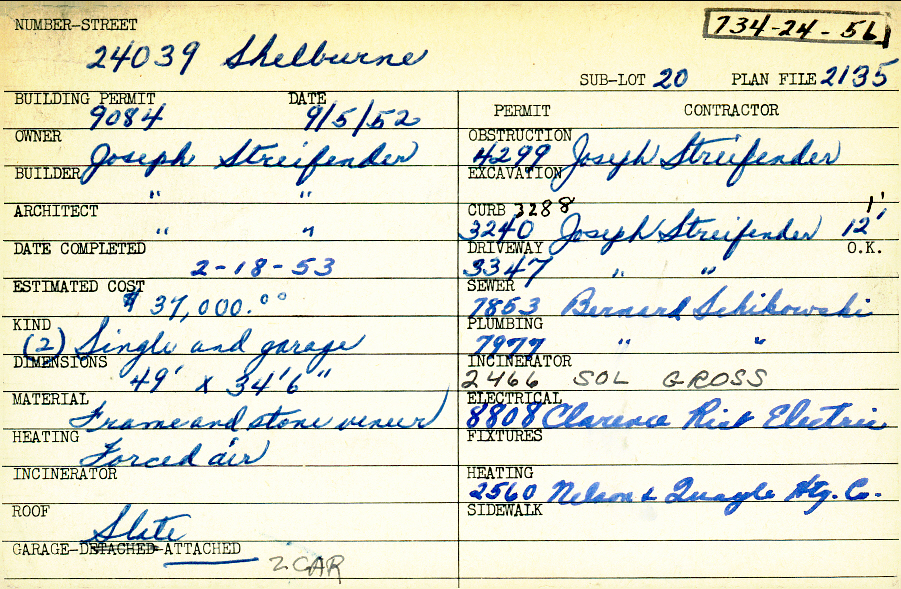 NUMBER-STREET
734-24-56
24039 Shelburne
SUB-LOT 20 PLAN FILE 2135
BUILDING PERMIT DATE
9084 9/5/52
OWNER
Joseph Streifender
BUILDER
" "
ARCHITECT
" "
DATE COMPLETED
2-18-53
ESTIMATED COST
$37,000.00
KIND
(2) Single and garage
DIMENSIONS
49' x 34'6"
MATERIAL
Frame and stone veneer
HEATING
Forced air
INCINERATOR
ROOF
Slate
GARAGE-DETACHED-ATTACHED
2 CAR
PERMIT CONTRACTOR
OBSTRUCTION
4299 Joseph Streifender
EXCAVATION
CURB 3288 1'
3240 Joseph Streifender 12'
DRIVEWAY O.K.
3347 " "
SEWER
7853 Bernard Schikowski
PLUMBING
7977 " "
INCINERATOR
2466 SOL GROSS
ELECTRICAL
8808 Clarence Rist Electric
FIXTURES
HEATING
2560 Nelson & Quayle Htg. Co.
SIDEWALK